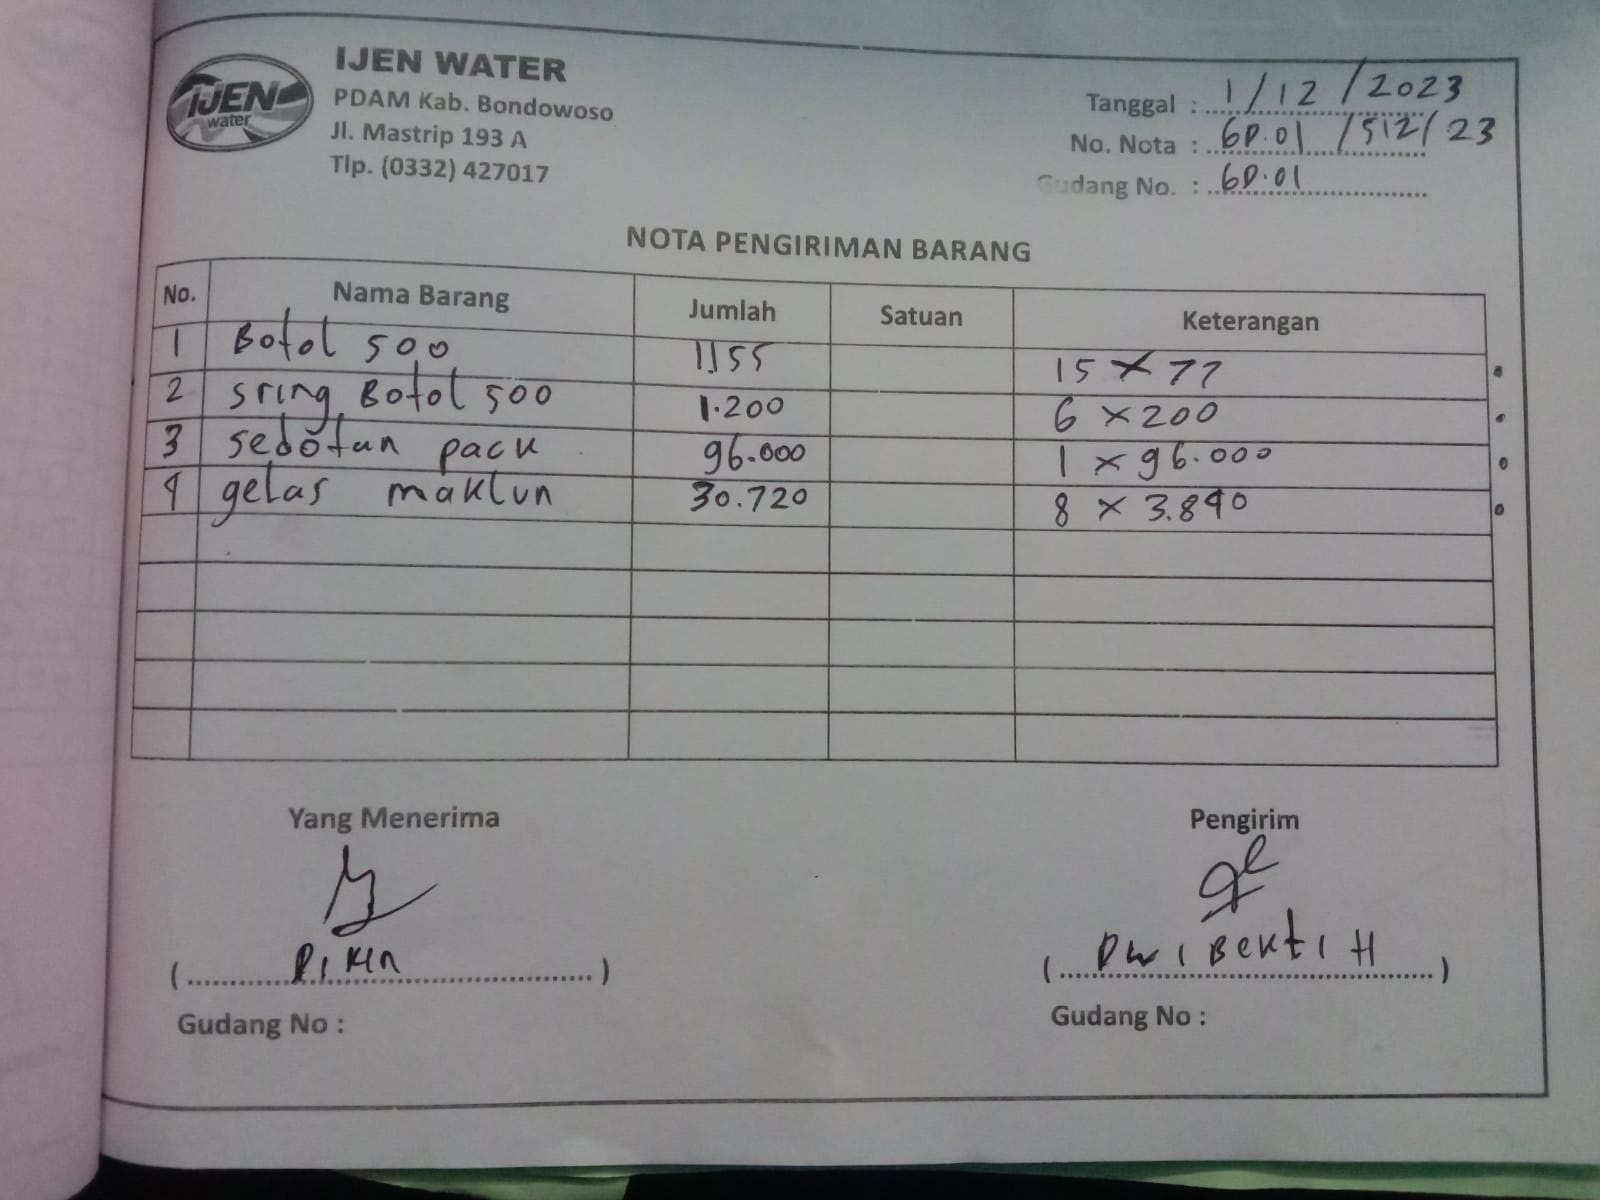 IJEN water
IJEN WATER
PDAM Kab. Bondowoso
Jl. Mastrip 193 A
Tlp. (0332) 427017
Tanggal : 1/12/2023
No. Nota : 6D.01 /512/23
Gudang No. : 6D.01
NOTA PENGIRIMAN BARANG
No. Nama Barang Jumlah Satuan Keterangan
1 Botol 500 1.155 15 x 77
2 sring Botol 500 1.200 6 x 200
3 sedotan pack 96.000 1 x 96.000
4 gelas maklun 30.720 8 x 3.840
Yang Menerima Pengirim
( ) (Dwi Bekti H)
Gudang No : Gudang No :